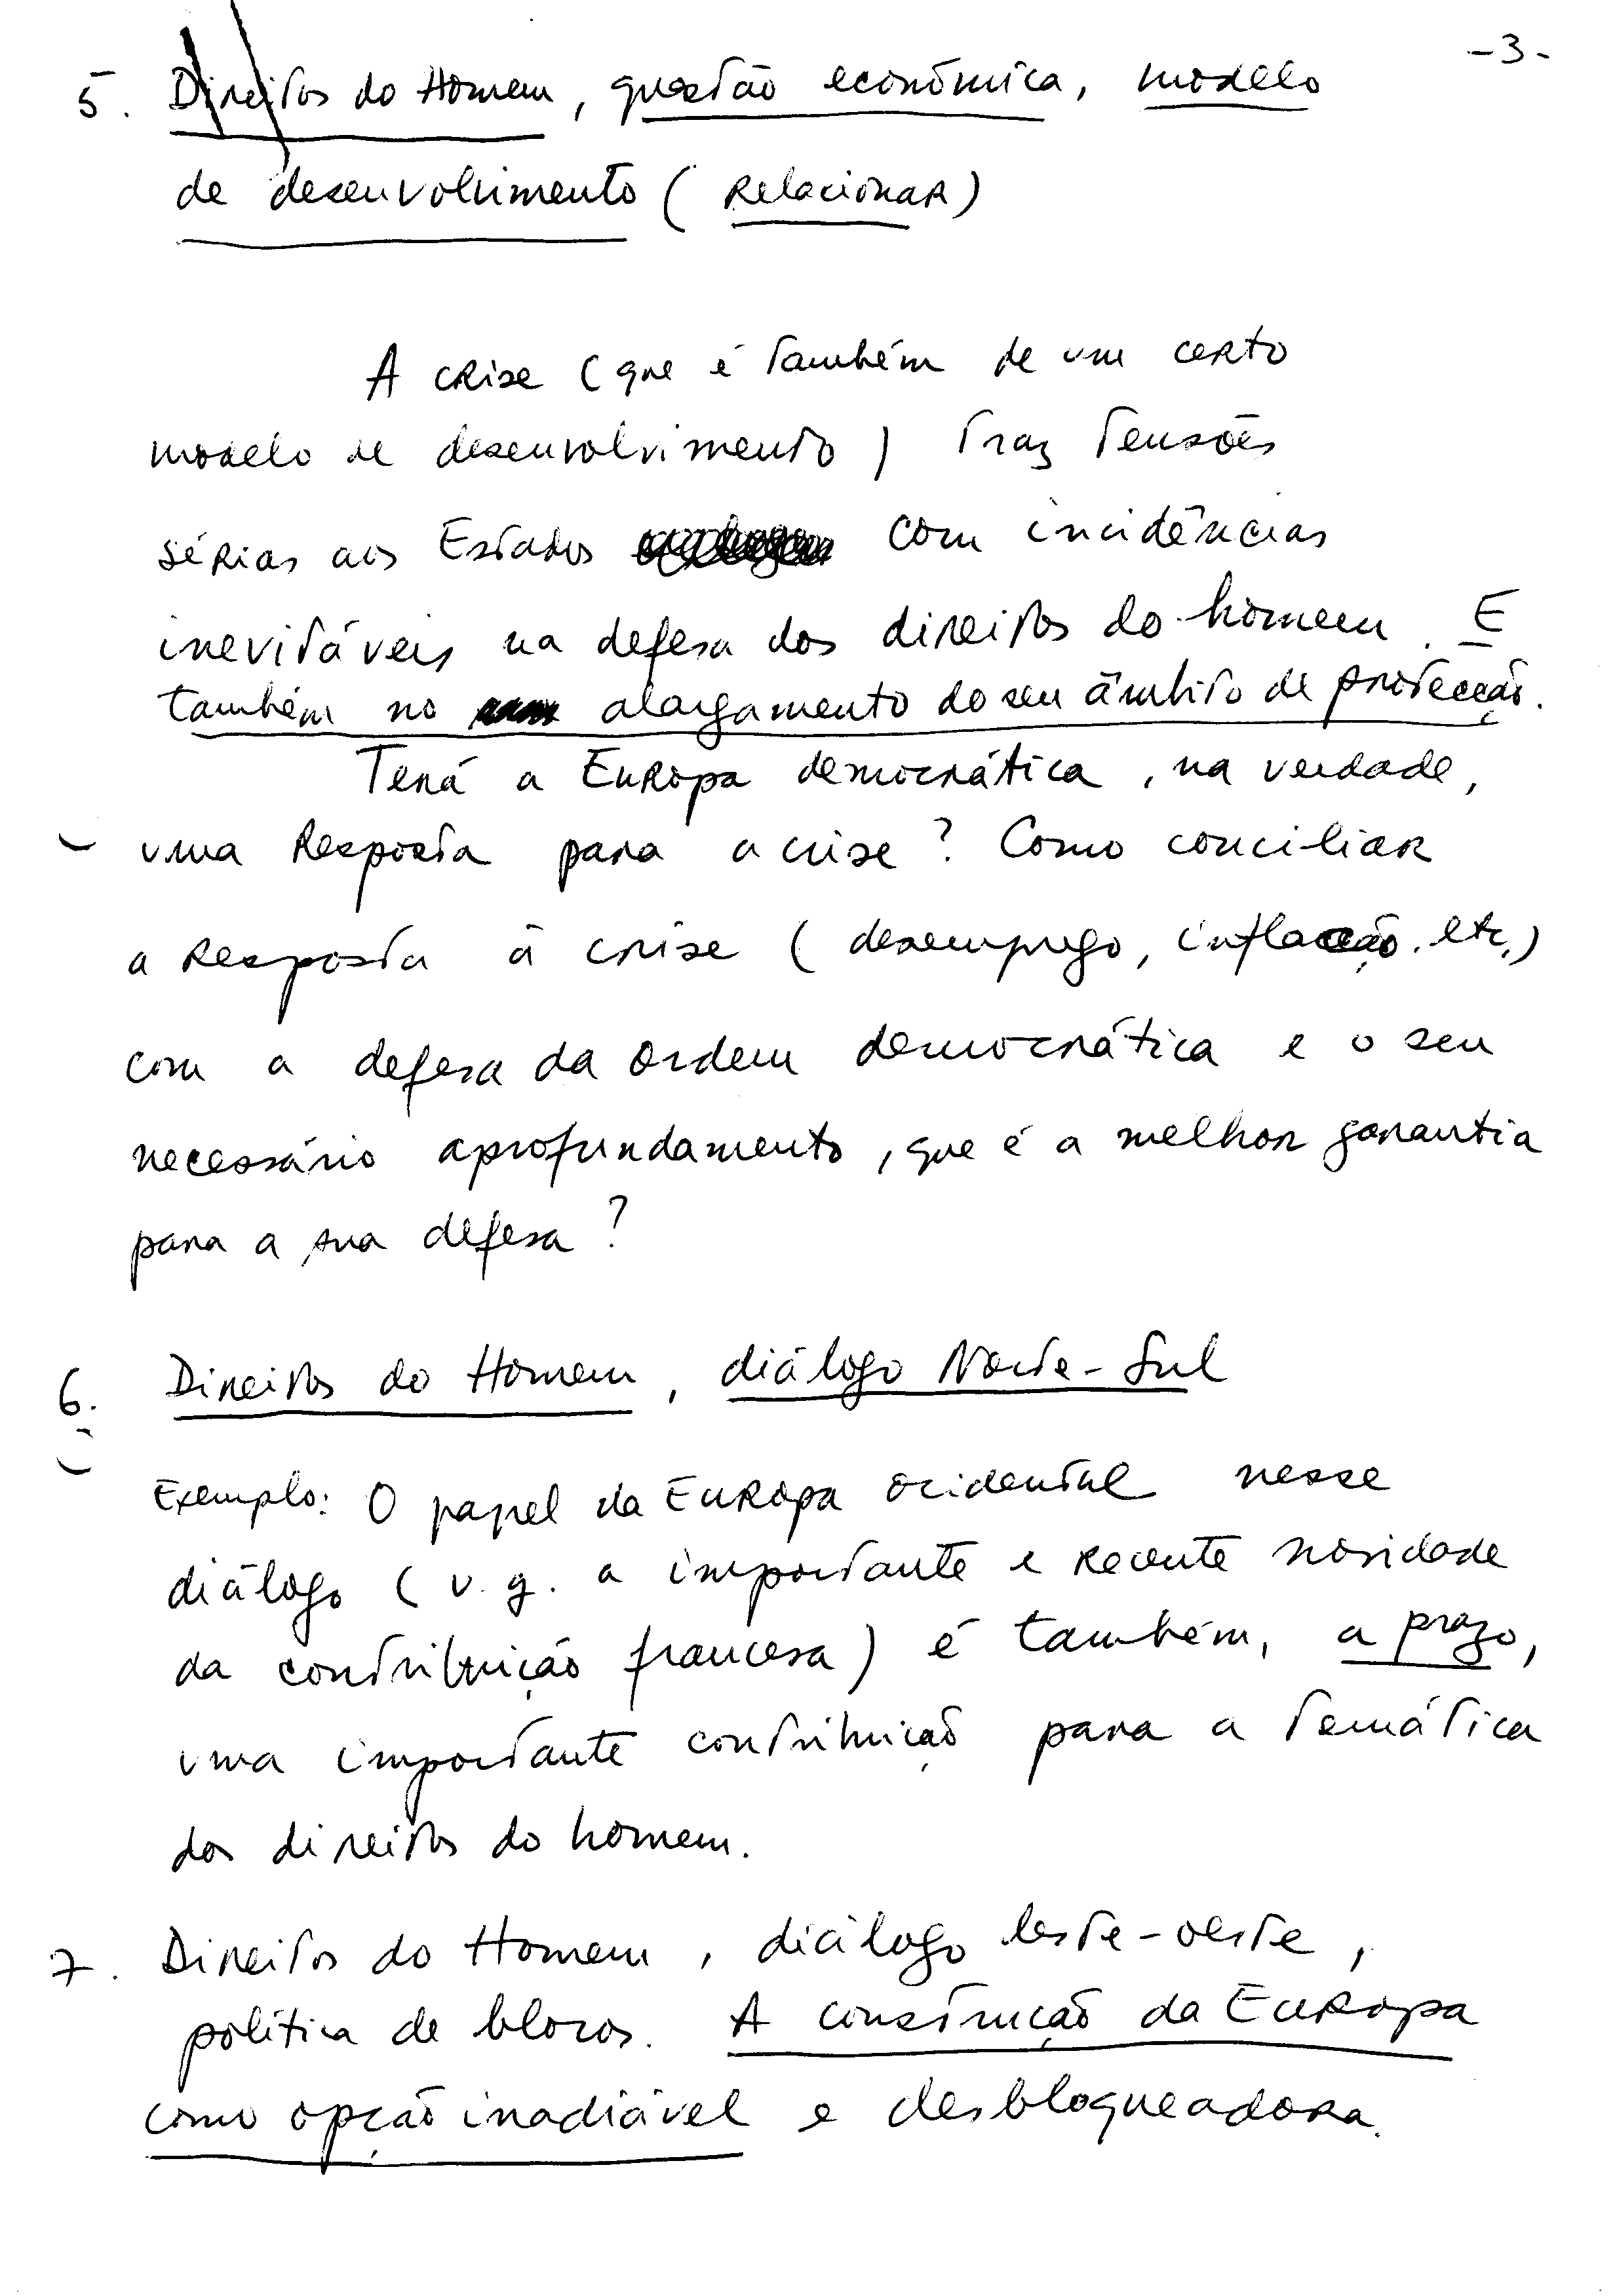 -3-
5. Direitos do Homem, questão económica, modelo
de desenvolvimento (Relacionar)
A crise (que é também de um certo
modelo de desenvolvimento) traz tensões
sérias aos Estados com incidências
inevitáveis na defesa dos direitos do homem. E
também no alargamento do seu âmbito de protecção.
Terá a Europa democrática, na verdade,
uma Resposta para a crise? Como conciliar
a Resposta à crise (desemprego, inflacção, etc.)
com a defesa da ordem democrática e o seu
necessário aprofundamento, que é a melhor garantia
para a sua defesa?
6. Direitos do Homem, diálogo Norte-Sul
Exemplo: O papel da Europa ocidental nesse
diálogo (v.g. a importante e recente novidade
da contribuição francesa) é também, a prazo,
uma importante contribuição para a temática
dos direitos do homem.
7. Direitos do Homem, diálogo leste-oeste,
política de blocos. A construção da Europa
como opção inadiável e desbloqueadora.